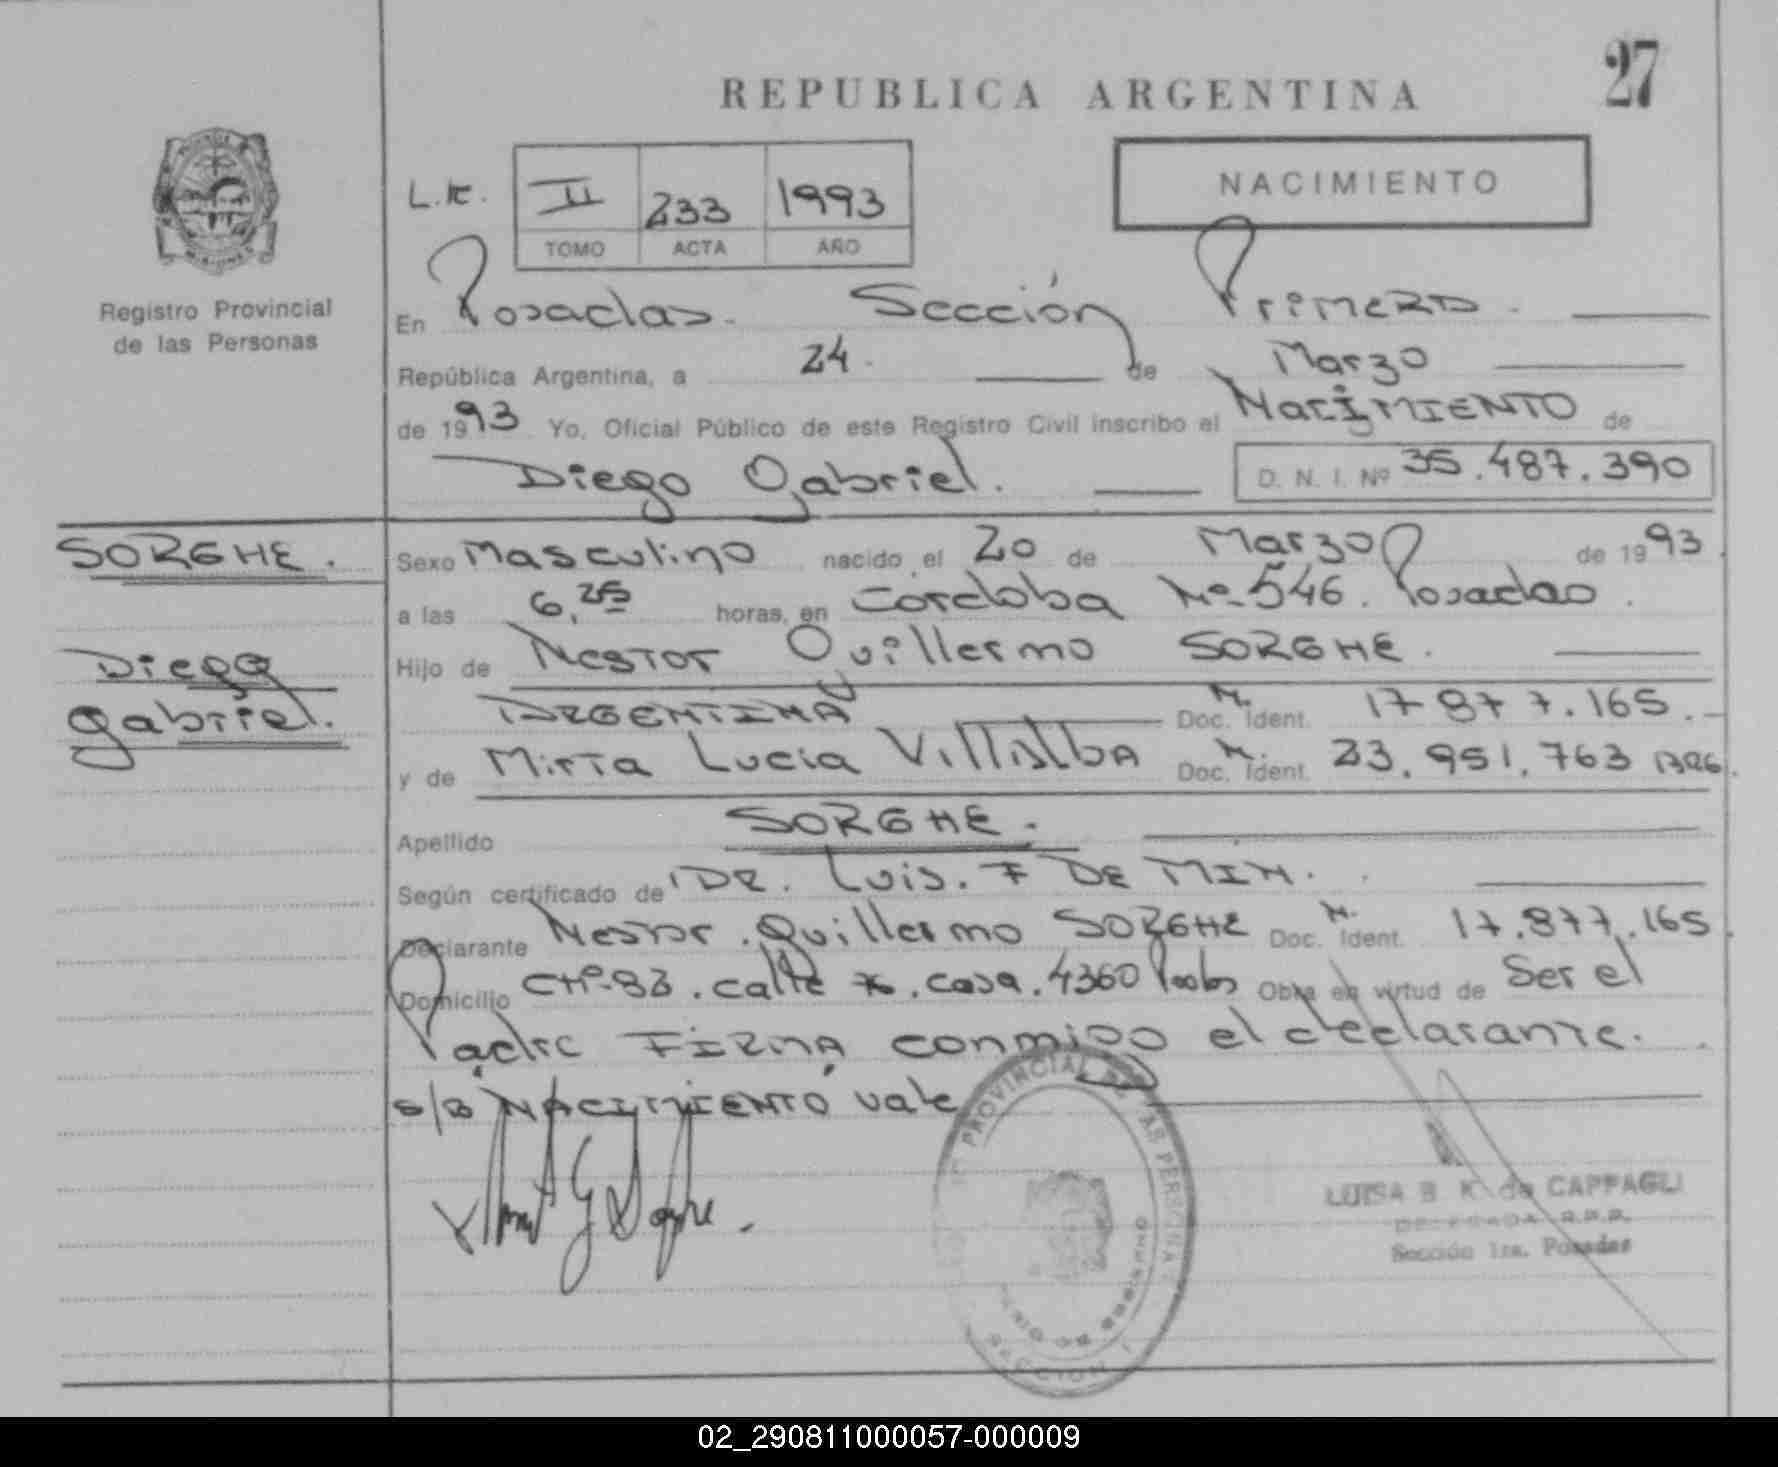 27
REPUBLICA ARGENTINA
NACIMIENTO
L.K. II 233 1993
TOMO ACTA AÑO
Registro Provincial
de las Personas
En Posadas. Sección Primera.
República Argentina, a 24. de Marzo
de 1993 Yo, Oficial Público de este Registro Civil inscribo el Nacimiento de
Diego Gabriel. D. N. I. Nº 35.487.390
SORGHE.
Diego
Gabriel.
Sexo Masculino nacido el 20 de Marzo de 1993.
a las 6,25 horas, en Cordoba Nº 546. Posadas.
Hijo de Nestor Guillermo SORGHE.
ARGENTINA Doc. Ident. 17.877.165.
y de Mirta Lucia Villalba Doc. Ident. 23.951.763 ARG.
Apellido SORGHE.
Según certificado de DR. Luis. F DE MIN.
Declarante Nestor Guillermo SORGHE Doc. Ident. 17.877.165
Domicilio CHº 83. calle . casa. 4360 Obra en virtud de Ser el
Padre FIRMA conmigo el declarante.
s/B NACIMIENTO vale
LUISA B K de CAPPAGLI
DELEGADA R.P.P.
Sección 1ra. Posadas
02_290811000057-000009